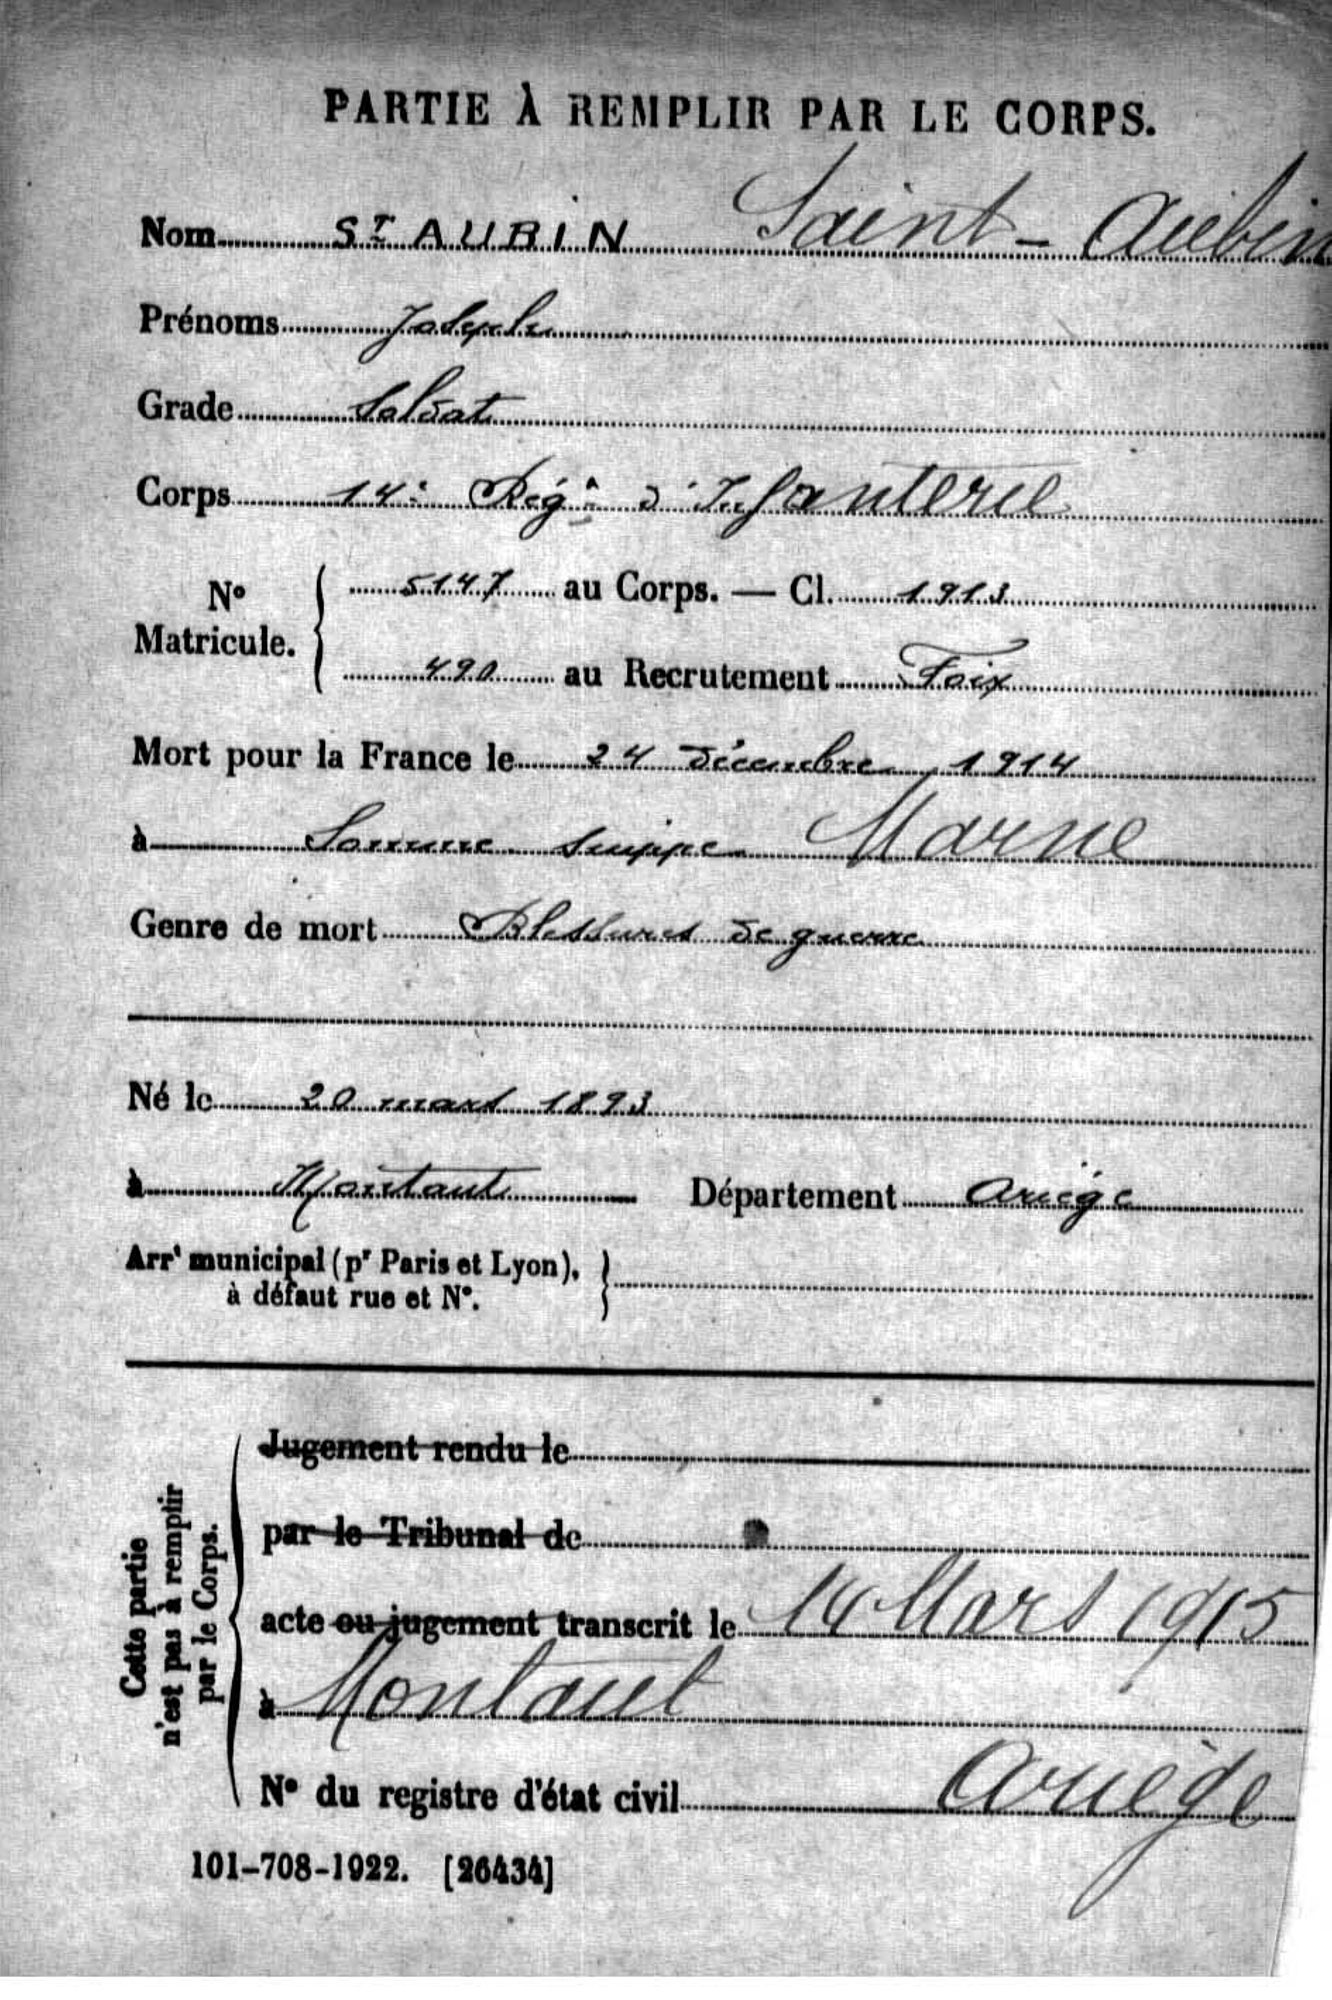 PARTIE À REMPLIR PAR LE CORPS.
Nom St AUBIN Saint-Aubin
Prénoms Joseph
Grade Soldat
Corps 14e Régt d'Infanterie
No Matricule. 5147 au Corps. — Cl. 1913
490 au Recrutement Foix
Mort pour la France le 24 décembre 1914
à Somme Suippe Marne
Genre de mort Blessures de guerre
Né le 20 mars 1893
à Montaut Département Ariège
Arrt municipal (pr Paris et Lyon),
à défaut rue et No.
Cette partie
n'est pas à remplir
par le Corps.
Jugement rendu le
par le Tribunal de
acte ou jugement transcrit le 14 Mars 1915
à Montaut
Ariège
No du registre d'état civil
101-708-1922. [26434]